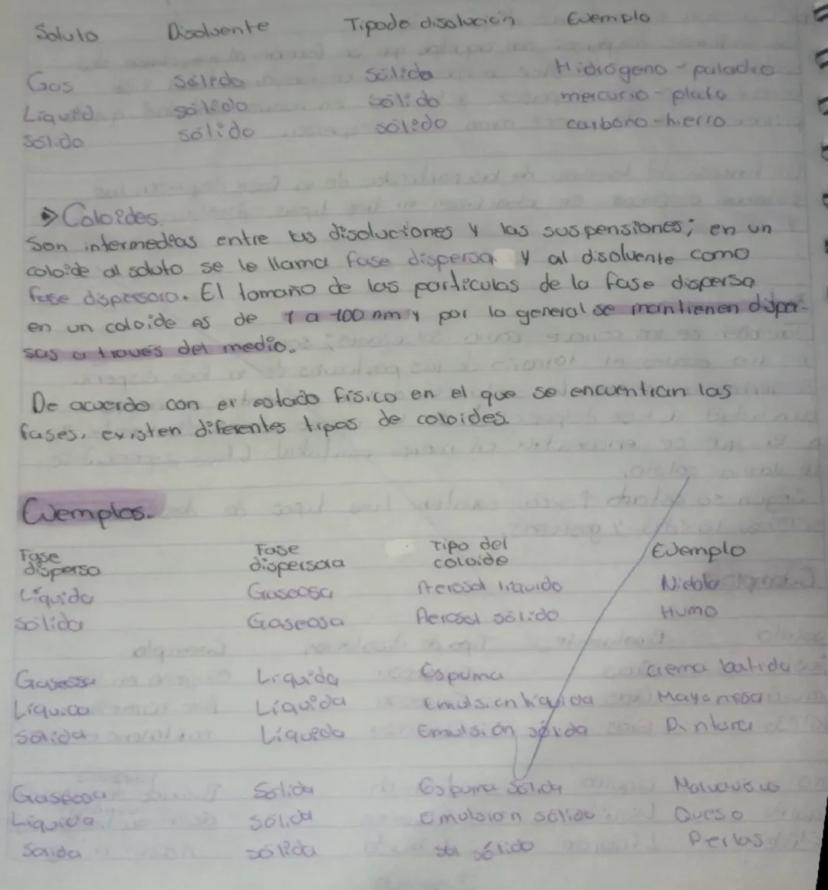 Soluto Disolvente Tipo de disolución Ejemplo
Gas sólido sólida Hidrógeno - paladio
Líquido sólido sólido mercurio - plata
Sólido sólido sólido carbono - hierro
Coloides.
Son intermedias entre las disoluciones y las suspensiones; en un
coloide al soluto se le llama fase dispersa y al disolvente como
fase dispersora. El tamaño de las partículas de la fase dispersa
en un coloide es de 1 a 100 nm y por lo general se mantienen disper-
sas a través del medio.
De acuerdo con el estado físico en el que se encuentran las
fases, existen diferentes tipos de coloides.
Ejemplos.
Fase dispersa Fase dispersora Tipo del coloide Ejemplo
Líquida Gaseosa Aerosol líquido Niebla
Sólida Gaseosa Aerosol sólido Humo
Gaseosa Líquida Espuma crema batida
Líquida Líquida Emulsión líquida Mayonesa
Sólida Líquida Emulsión sólida Pintura
Gaseosa Sólida Espuma sólida
Líquida sólida Emulsión sólida Queso
Sólida sólida sólido Perlas